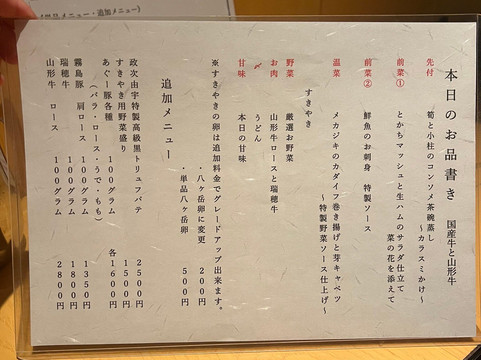 単品メニュー・追加メニュー》
本日のお品書き　国産牛と山形牛
先付　筍と小柱のコンソメ茶碗蒸し
～カラスミかけ～
前菜①　とかちマッシュと生ハムのサラダ仕立て
菜の花を添えて
前菜②　鮮魚のお刺身　特製ソース
温菜　メカジキのカダイフ巻き揚げと芽キャベツ
～特製野菜ソース仕上げ～
すきやき
野菜　厳選お野菜
お肉　山形牛ロースと瑞穂牛
〆　うどん
甘味　本日の甘味
※すきやきの卵は追加料金でグレードアップ出来ます。
・八ヶ岳卵に変更　２００円
・単品八ヶ岳卵　５００円
追加メニュー
政次由宇特製高級黒トリュフパテ　２５００円
すきやき用野菜盛り　１５００円
あぐー豚各種　１００グラム　各１６００円
（バラ・ロース・うで・もも）
霧島豚　肩ロース　１００グラム　１３５０円
瑞穂牛　１００グラム　１８００円
山形牛　ロース　１００グラム　２８００円